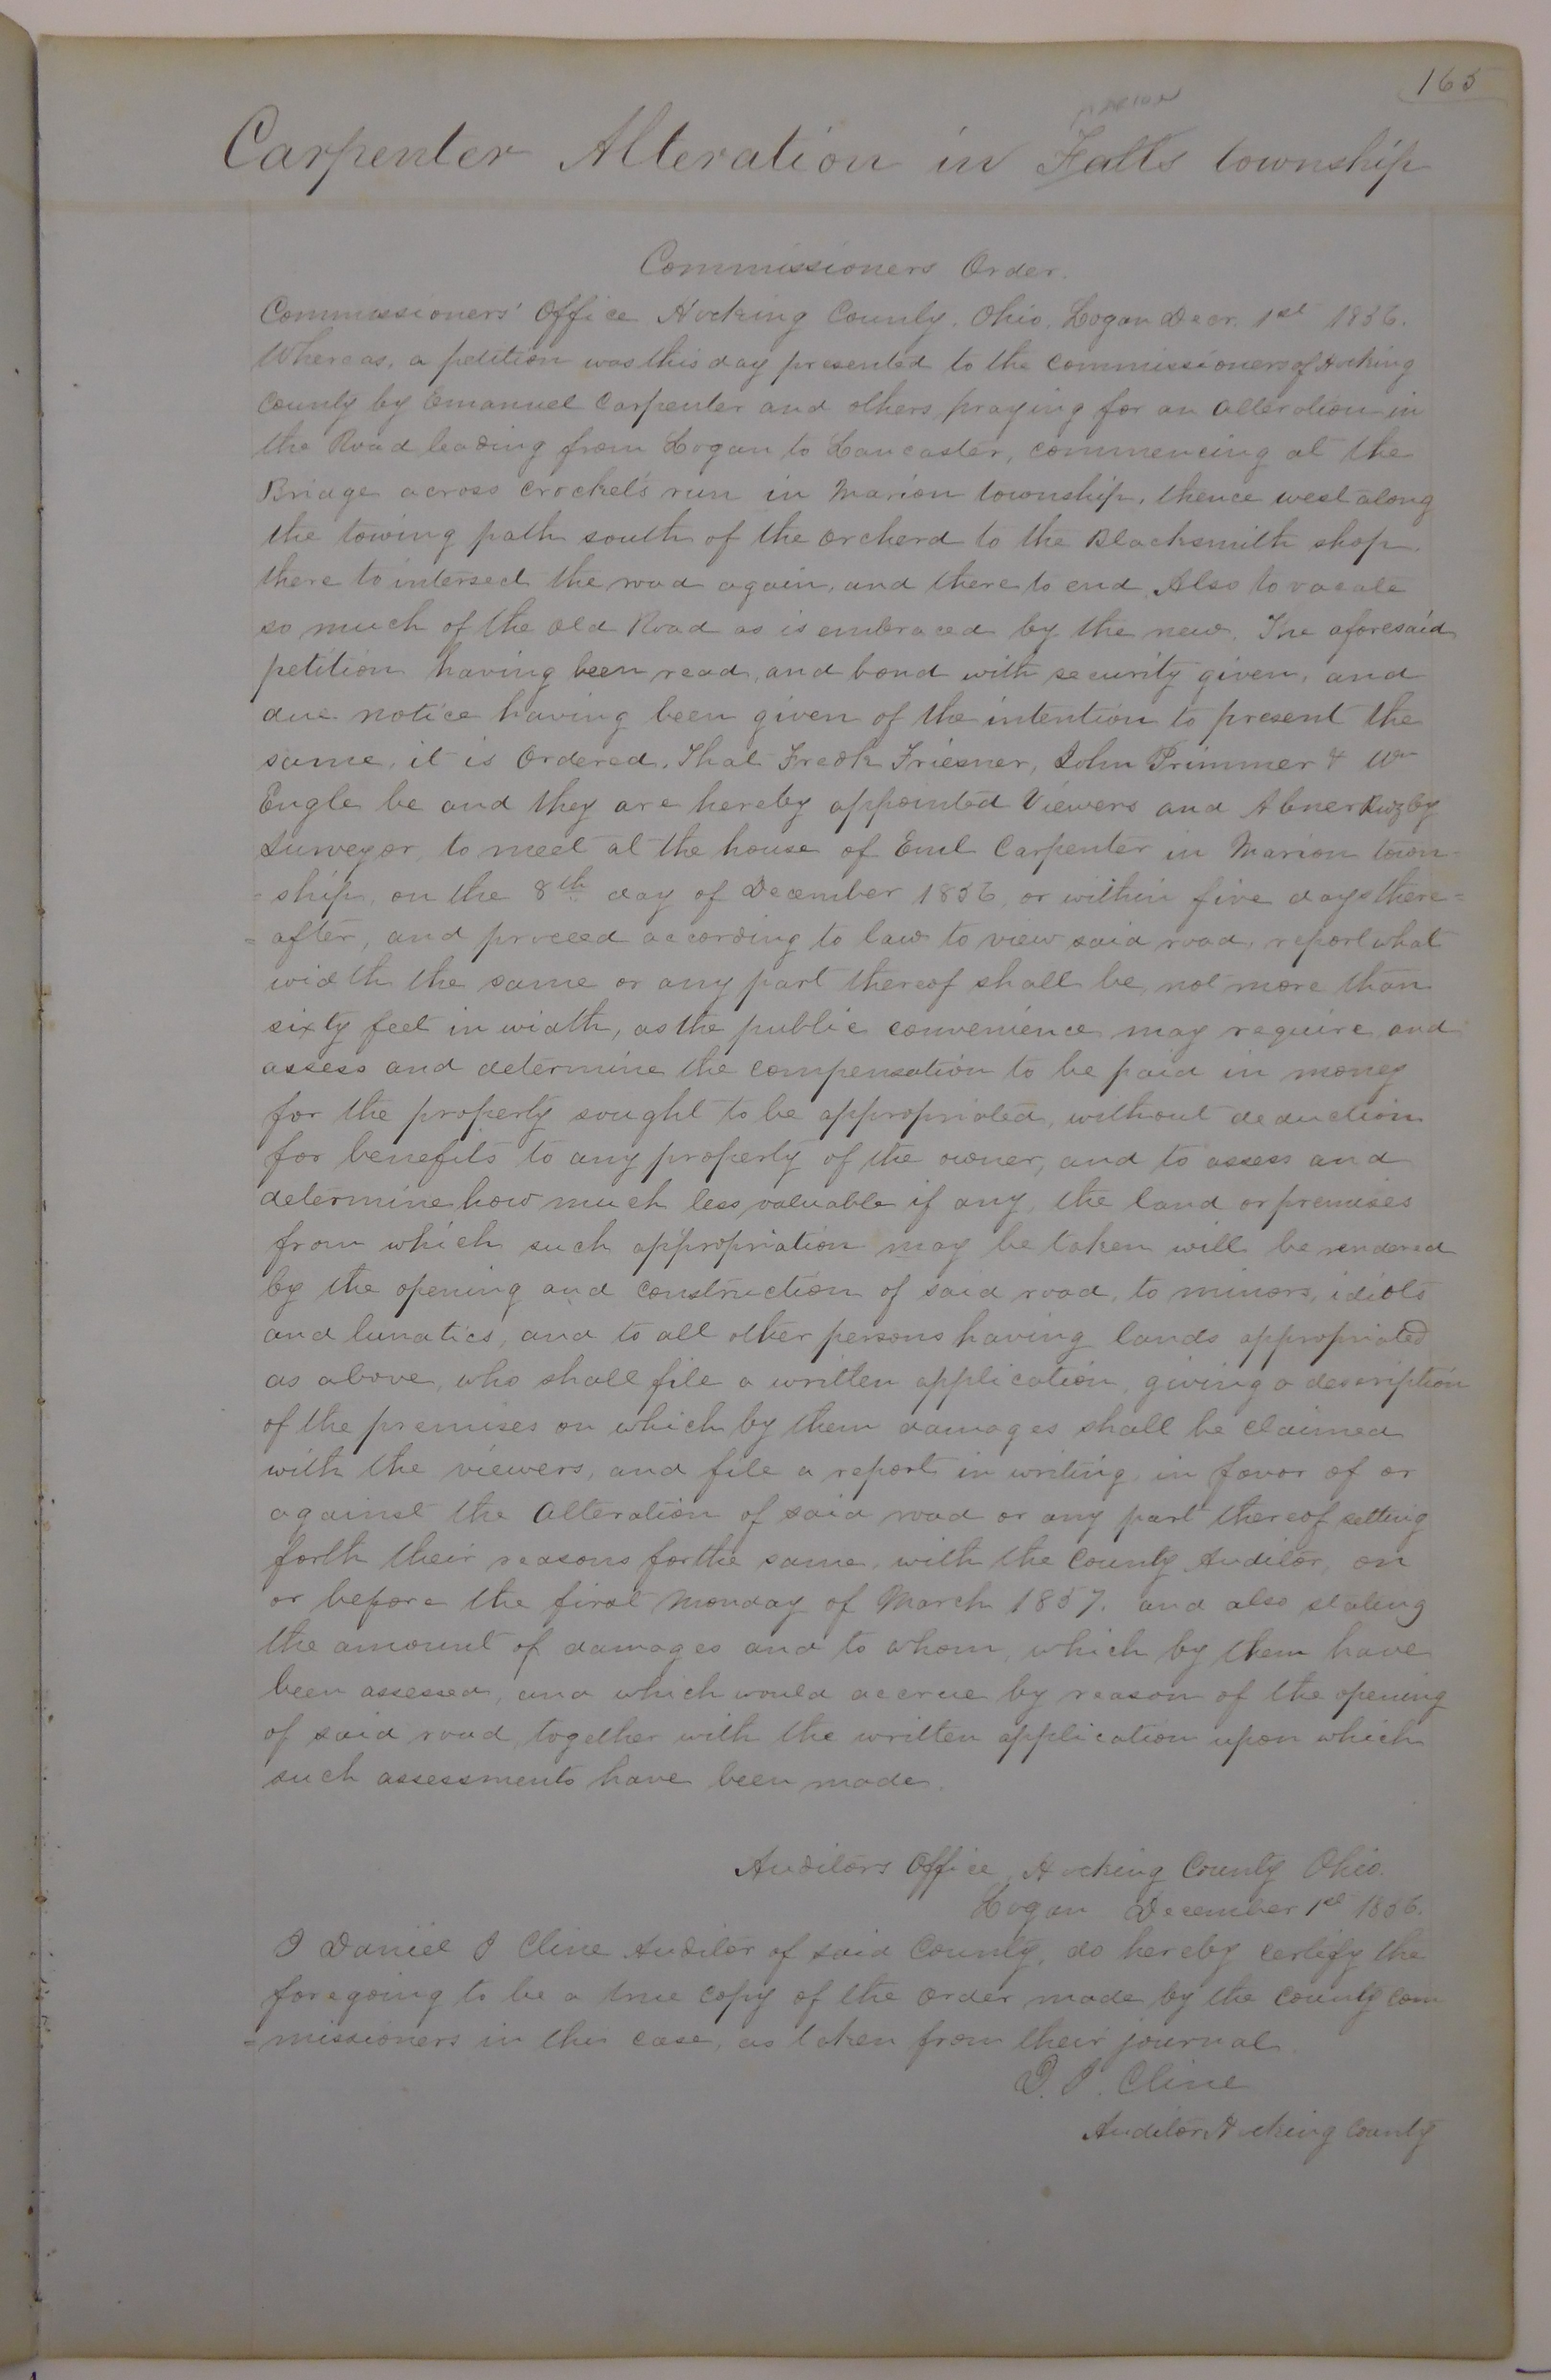 165
MARION
Carpenter Alteration in Falls township
Commissioners Order.
Commissioners' Office Hocking County. Ohio. Logan Decr. 1st 1856.
Whereas, a petition was this day presented to the commissioners of Hocking
County by Emanuel Carpenter and others, praying for an alteration in
the Road leading from Logan to Lancaster, commencing at the
Bridge across Crockel's run in Marion township, thence west along
the towing path south of the orcherd to the Blacksmith shop.
there to intersect the road again, and there to end. Also to vacate
so much of the old Road as is embraced by the new. The aforesaid
petition having been read, and bond with security given, and
due notice having been given of the intention to present the
same, it is Ordered, That Fredk Friesner, John Primmer & Wm
Engle be and they are hereby appointed Viewers and Abner
Surveyor, to meet at the house of Eml Carpenter in Marion town-
-ship, on the 8th day of December 1856, or within five days there=
=after, and proceed according to law to view said road, report what
width the same or any part thereof shall be, not more than
sixty feet in width, as the public convenience may require and
assess and determine the compensation to be paid in money
for the property sought to be appropriated, without deduction
for benefits to any property of the owner, and to assess and
determine how much less valuable if any, the land or premises
from which such appropriation may be taken will be rendered
by the opening and construction of said road, to minors, idiots
and lunatics, and to all other persons having lands appropriated
as above, who shall file a written application, giving a description
of the premises on which by them damages shall be claimed
with the viewers, and file a report in writing, in favor of or
against the alteration of said road or any part thereof setting
forth their reasons for the same, with the County Auditor, on
or before the first Monday of March 1857. and also stating
the amount of damages and to whom, which by them have
been assessed, and which would accrue by reason of the opening
of said road, together with the written application upon which
such assessments have been made.
Auditors Office, Hocking County Ohio.
Logan December 1st 1856.
I Daniel I Cline Auditor of said County, do hereby certify the
foregoing to be a true copy of the order made by the County Com
=missioners in this case, as taken from their journal.
D. I. Cline
Auditor Hocking County